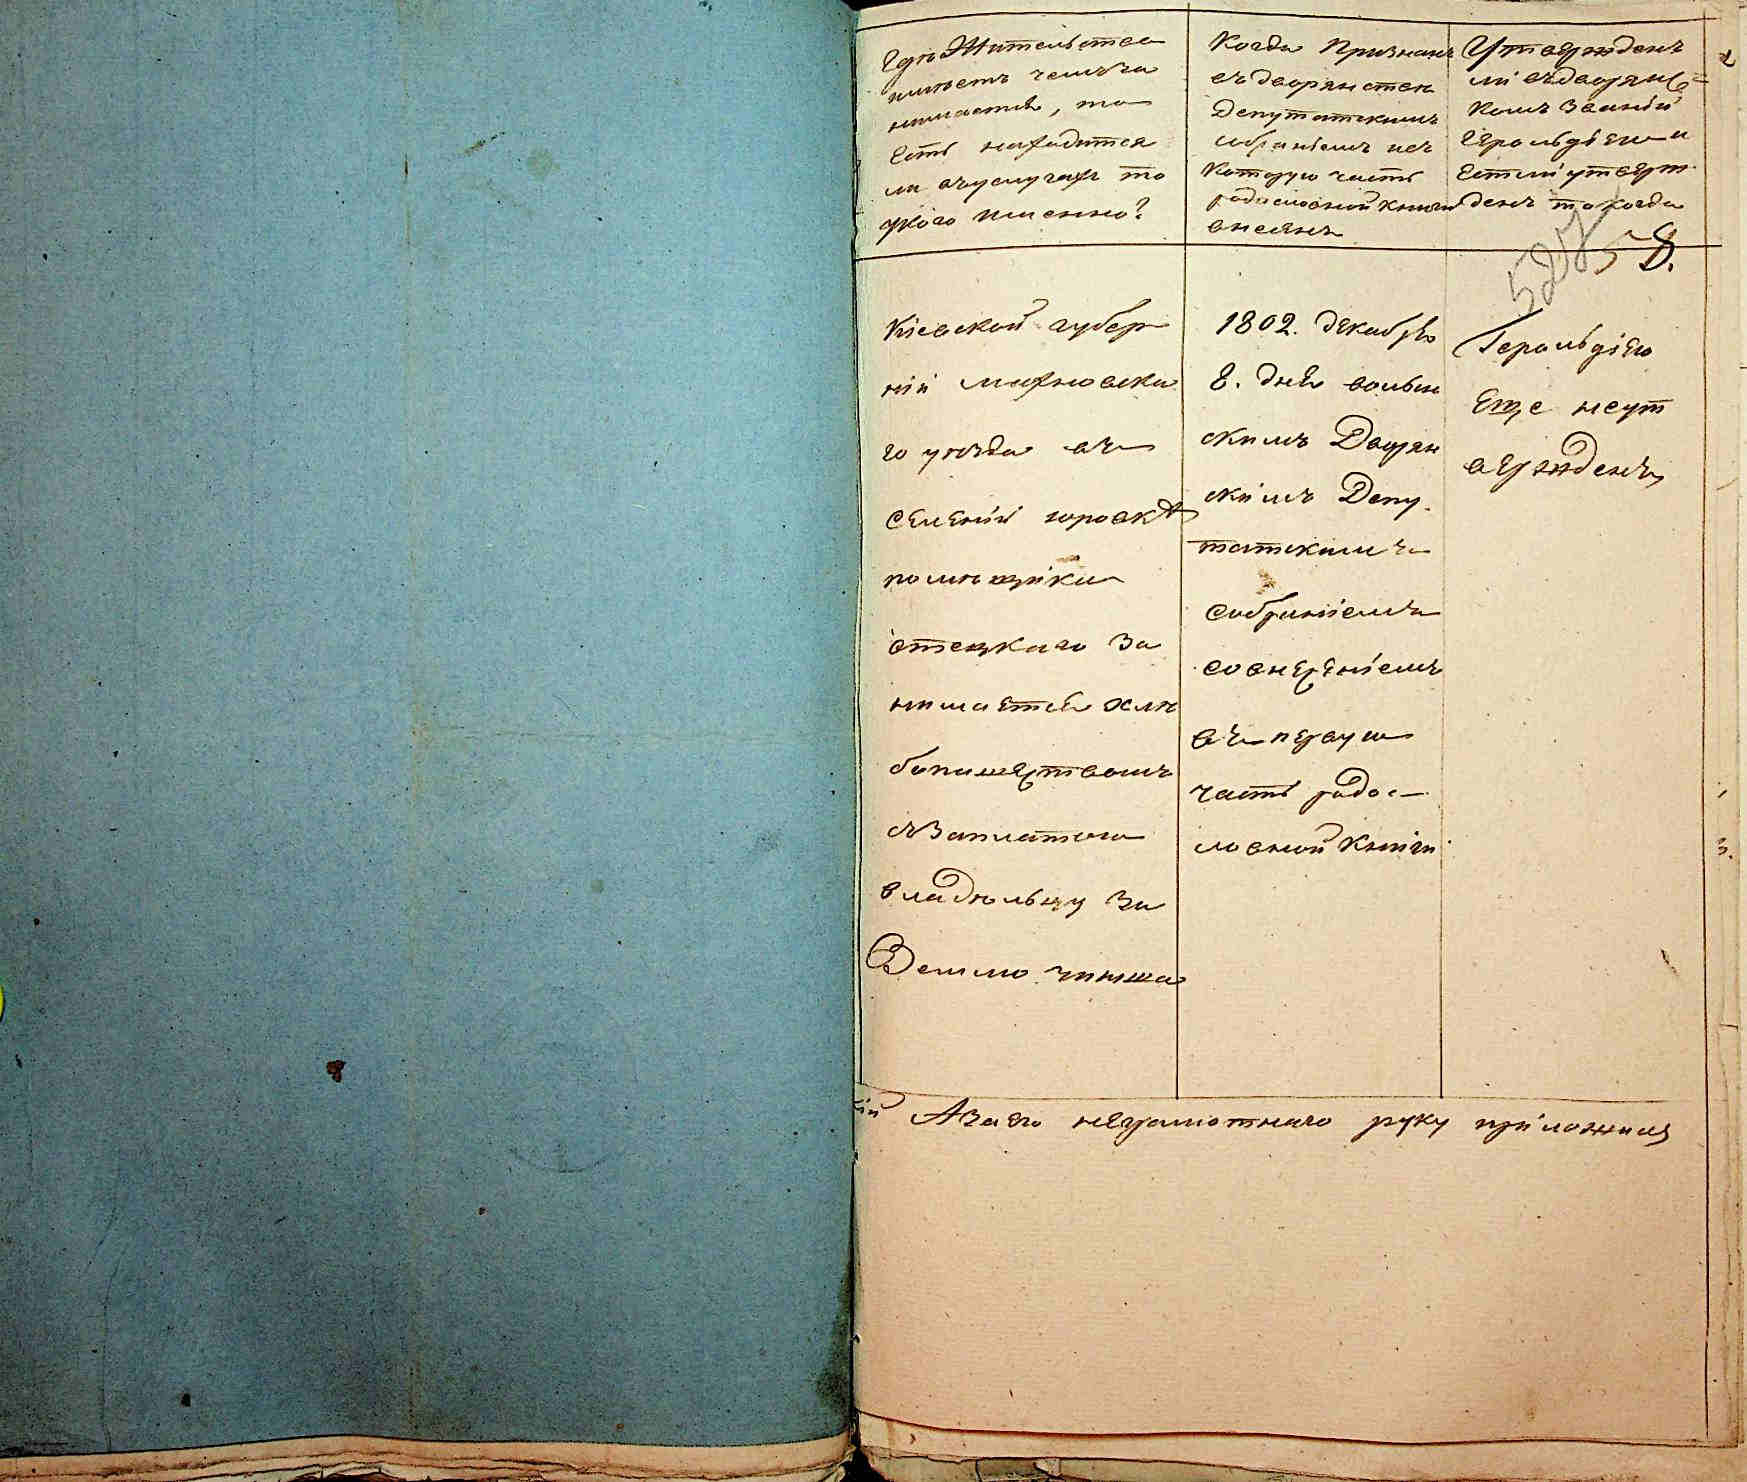 Гдѣ Жительство
имѣетъ чемъ за
нимается, то
есть находится
ли въ услугах то
у кого именно?
Когда Признанъ
въ дворянствѣ
Депутатскимъ
собраніемъ и въ
которую часть
родословной книги
внесенъ
Утвержденъ
ли въ дворянс=
комъ званіи
Герольдіею и
естли утверж
денъ то когда
527
58.
Кіевской губер
ніи махновска
го уѣзда въ
селеніи юровкѣ
помѣщика
отецкаго за
нимается хлѣ
бопашествомъ
съ заплатою
владѣльцу за
Землю чинша
1802. декабря
8. дня волын
скимъ Дворян
скимъ Депу
татскимъ
собраніемъ
со внесеніемъ
въ первую
часть родос
ловной книги
Герольдіею
еще неут
вержденъ
кій А за его неграмотнаго руку приложилъ